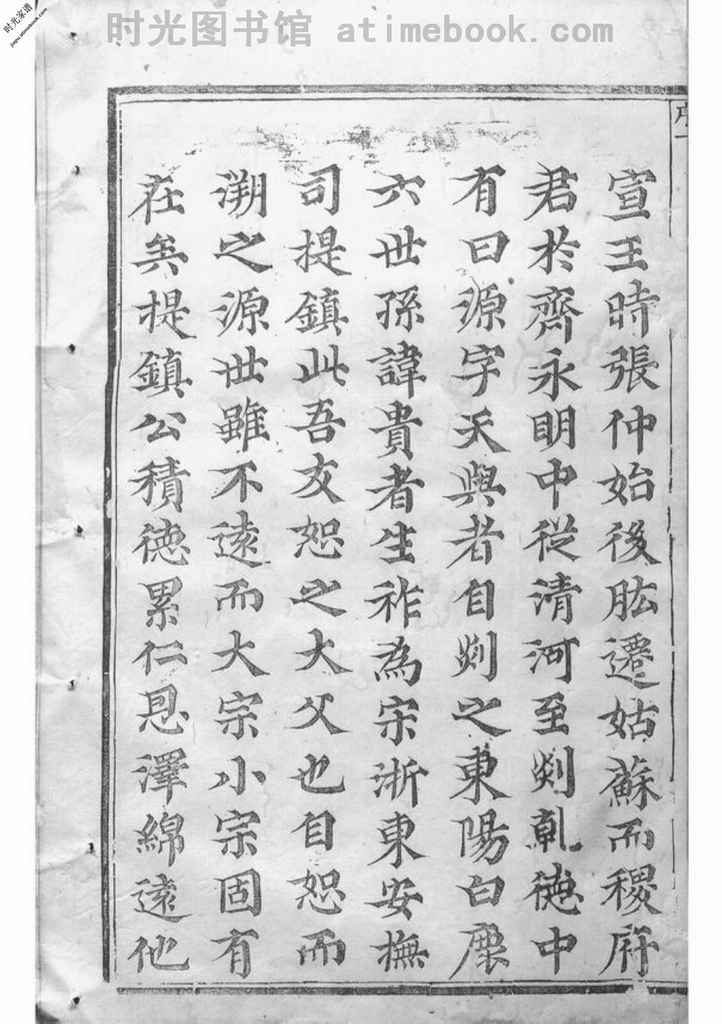 时光图书馆 atimebook.com
时光家谱
序一
宣王時張仲始後肱遷姑蘇而稷府
君於齊永明中從清河至剡乹德中
有曰源字天與者自剡之東陽白鹿
六世孫諱貴者生祚為宋浙東安撫
司提鎮此吾友恕之大父也自恕而
溯之源世雖不遠而大宗小宗固有
在矣提鎮公積德累仁恩澤綿遠他